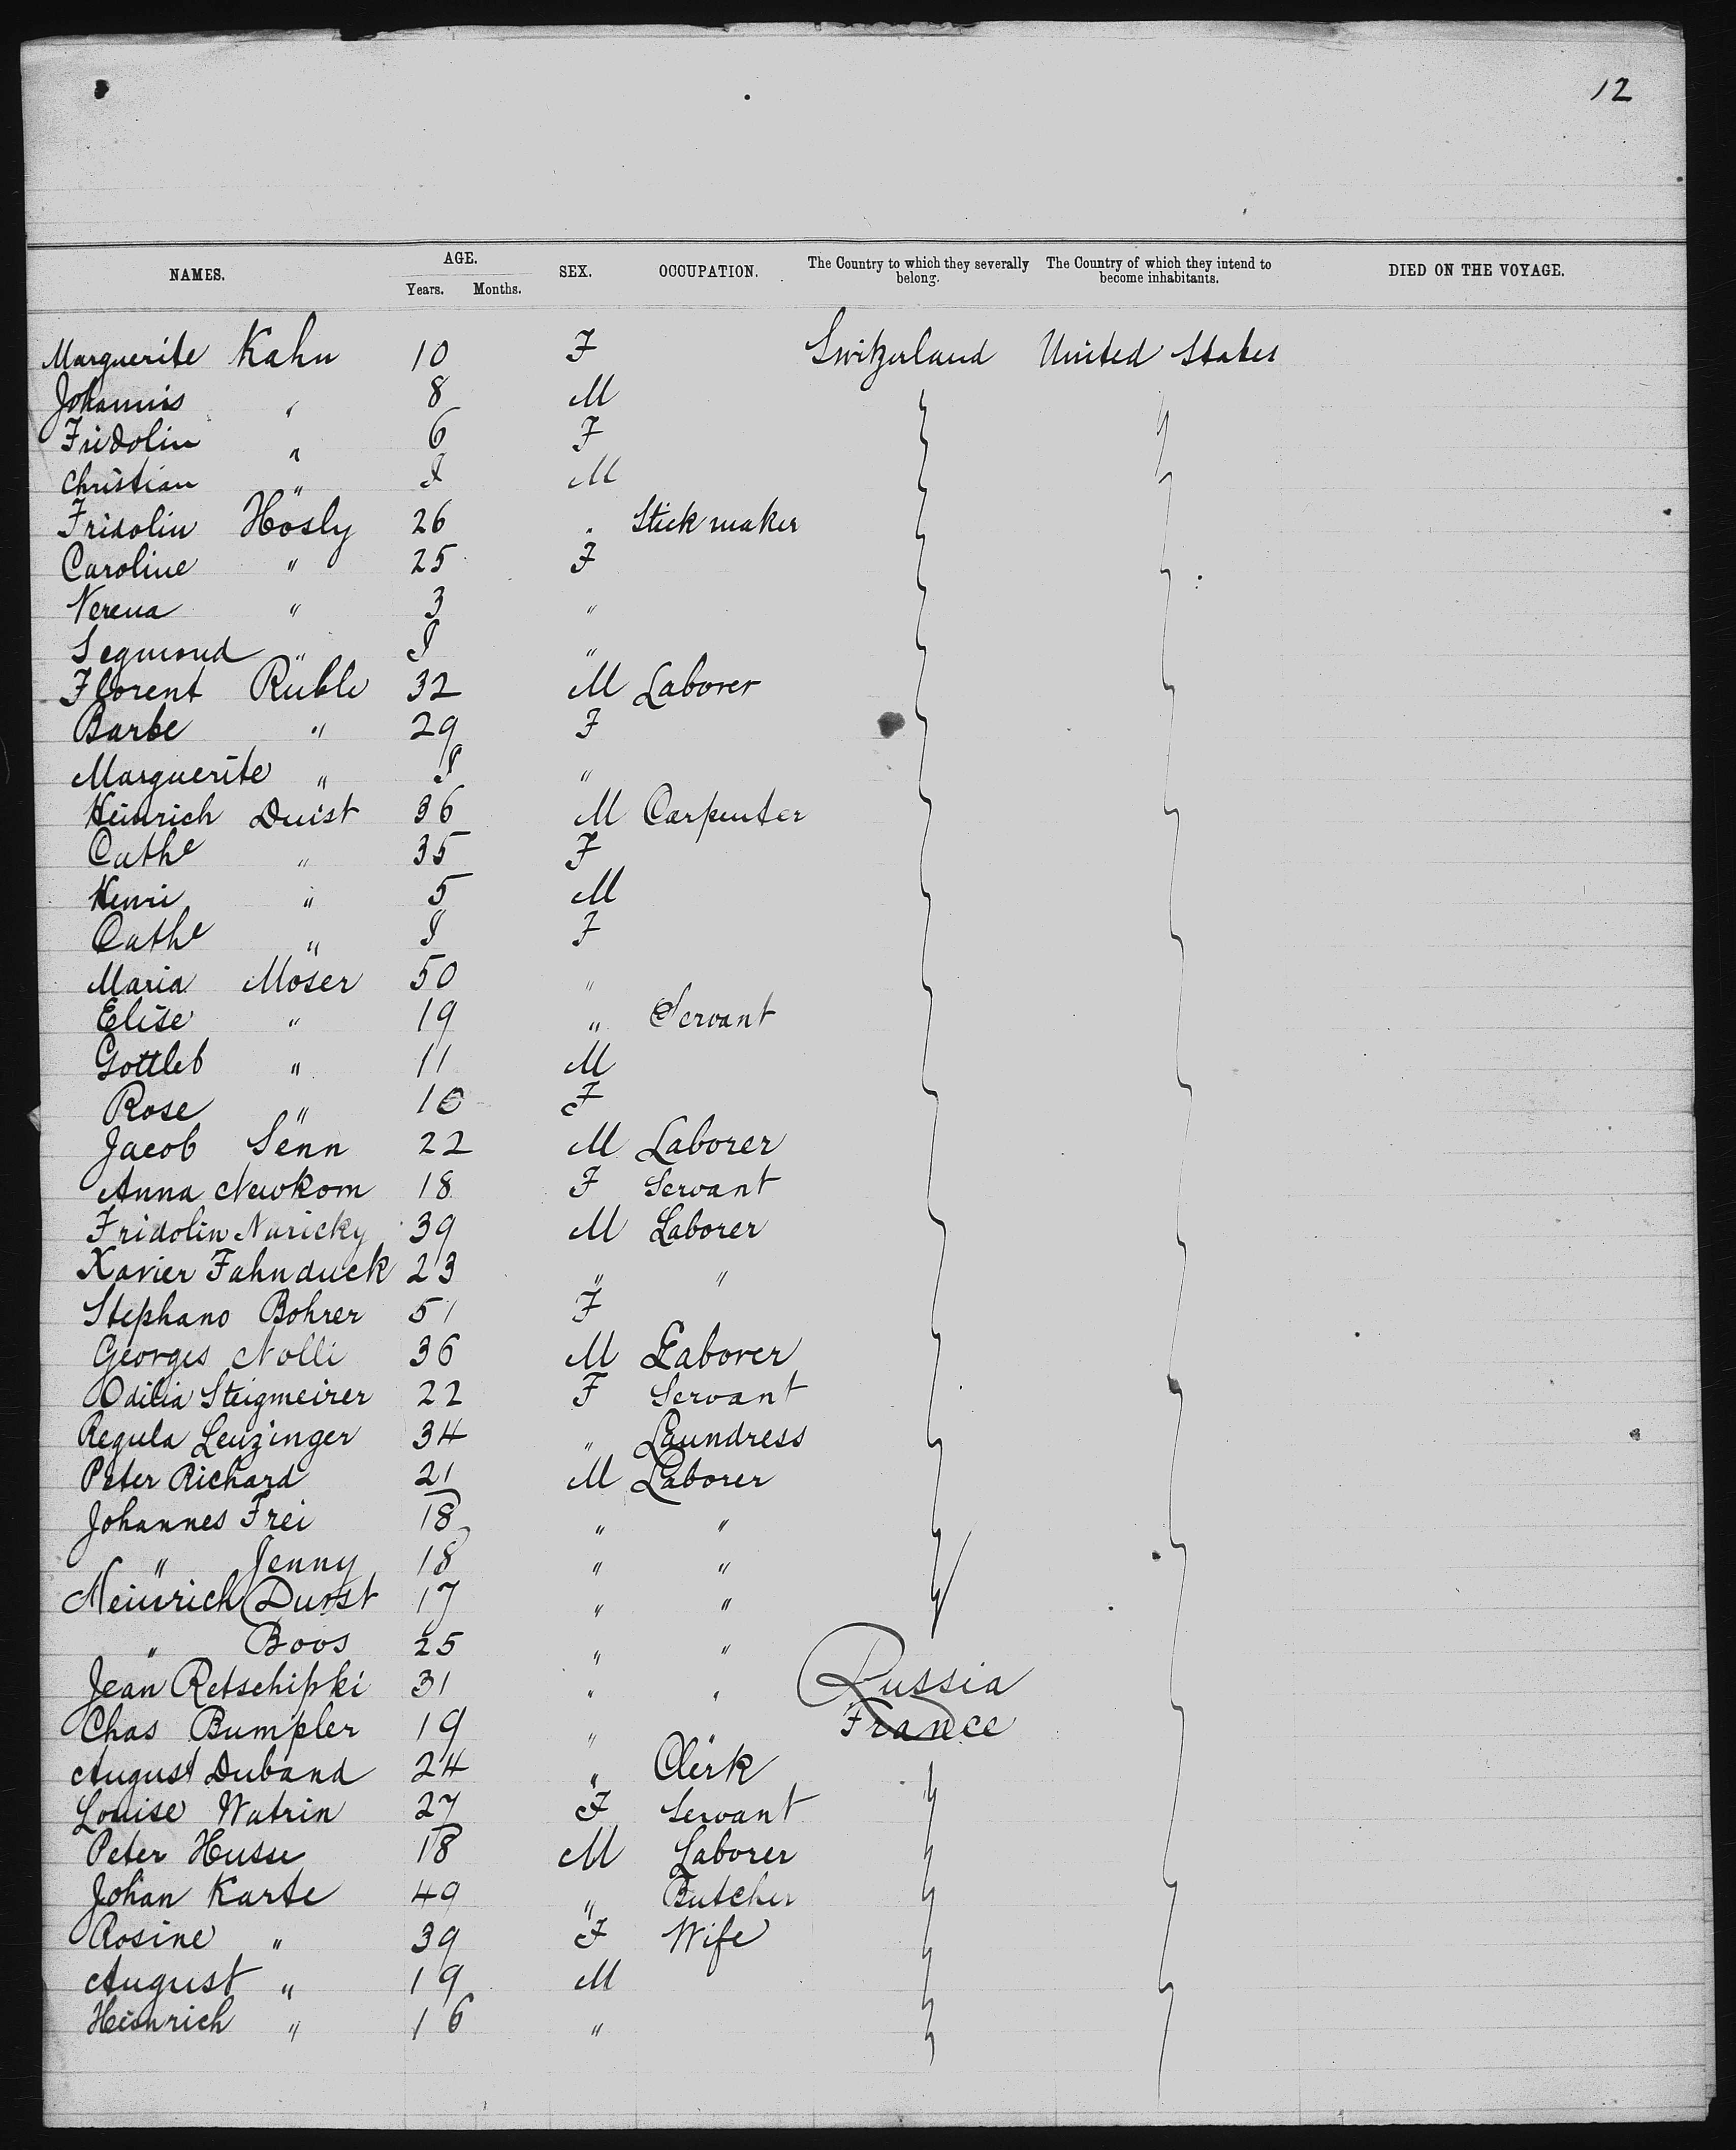 12
NAMES. AGE. Years. Months. SEX. OCCUPATION. The Country to which they severally belong. The Country of which they intend to become inhabitants. DIED ON THE VOYAGE.
Marguerite Kahn 10 F Switzerland United States
Johannis " 8 M
Fridolin " 6 F
Christian " M
Fridolin Hosly 26 " Stick maker
Caroline " 25 F
Verena " 3 "
Segmond " "
Florent Ruble 32 M Laborer
Barbe " 29 F
Marguerite " "
Heinrich Duist 36 M Carpenter
Cathe " 35 F
Henri " 5 M
Cathe " F
Maria Moser 50 "
Elise " 19 " Servant
Gottleb " 11 M
Rose " 10 F
Jacob Senn 22 M Laborer
Anna Newkom 18 F Servant
Fridolin Naricky 39 M Laborer
Xavier Fahnduck 23 " "
Stephano Bohrer 51 F
Georges Nolli 36 M Laborer
Odilia Steigmeirer 22 F Servant
Regula Leuzinger 34 " Laundress
Peter Richard 21 M Laborer
Johannes Frei 18 " "
" Jenny 18 " "
Heinrich Durst 17 " "
" Boos 25 " "
Jean Retschipki 31 " " Russia
Chas Bumpler 19 " " France
August Duband 24 " Clerk
Louise Watrin 27 F Servant
Peter Husse 18 M Laborer
Johan Karte 49 " Butcher
Rosine " 39 F Wife
August " 19 M
Heinrich " 16 "